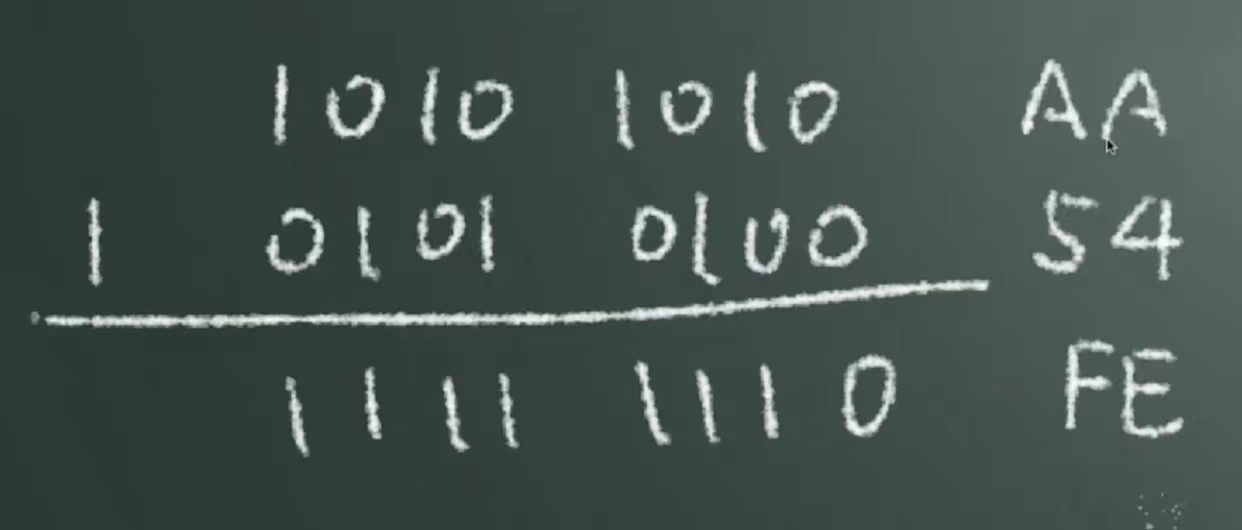 1010 1010 AA
1 0101 0100 54
1111 1110 FE